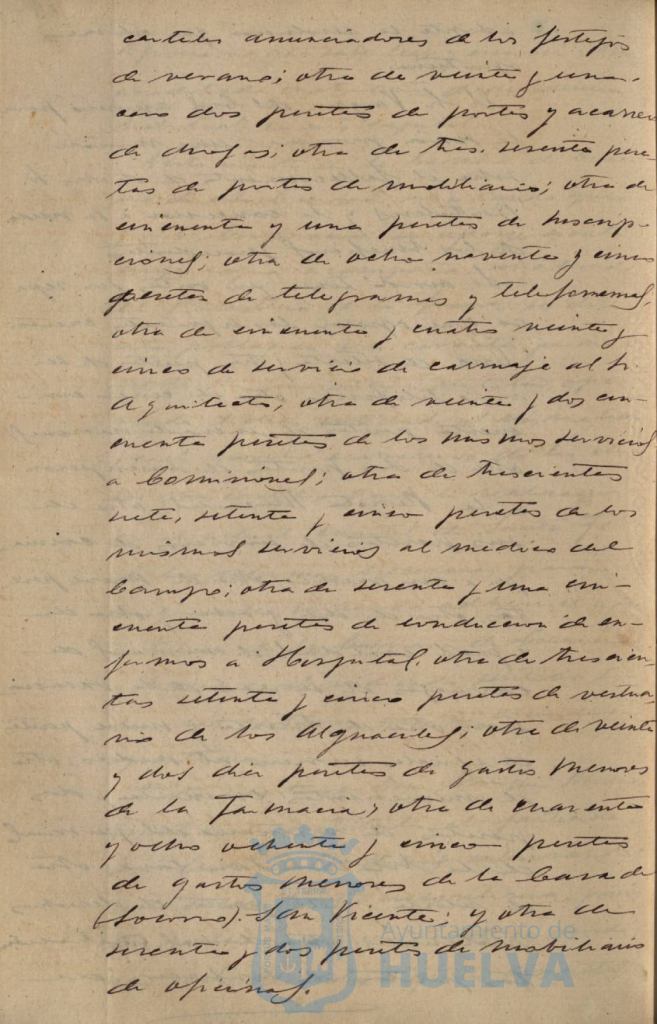 carteles anunciadores de los festejos
de verano; otra de veinte y una,
cero dos pesetas de portes y acarreo
de drogas; otra de tres, sesenta pese-
tas de portes de mobiliario; otra de
cincuenta y una pesetas de suscrip-
ciones; otra de ocho noventa y cinco
pesetas de telegramas y telefonemas,
otra de cincuenta y cuatro veinte y
cinco de servicio de carruaje al Sr.
Arquitecto; otra de veinte y dos cin-
cuenta pesetas de los mismos servicios
a Comisiones; otra de trescientas
siete, setenta y cinco pesetas de los
mismos servicios al medico del
Campo; otra de sesenta y una cin-
cuenta pesetas de conduccion de en-
fermos a Hospital, otra de trescien-
tas setenta y cinco pesetas de vestua-
rio de los Alguaciles; otra de veinte
y dos diez pesetas de gastos menores
de la farmacia; otra de cuarenta
y ocho ochenta y cinco pesetas
de gastos menores de la Casa de
(Socorro). San Vicente; y otra de
sesenta y dos pesetas de mobiliario
de oficinas.
Ayuntamiento de
HUELVA